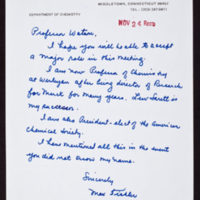 MIDDLETOWN, CONNECTICUT 06457
TEL.: (203) 347-9411
DEPARTMENT OF CHEMISTRY
NOV 24
Professor Watson,
I hope you will be able to accept a
major role in this meeting.
I am now Professor of Chemistry
at Wesleyan after being director of Research
for Merck for many years. Lew Sarett is
my successor.
I am also President-elect of the American
Chemical Society.
I have mentioned all this in the event
you did not know my name.
Sincerely
Max Tishler